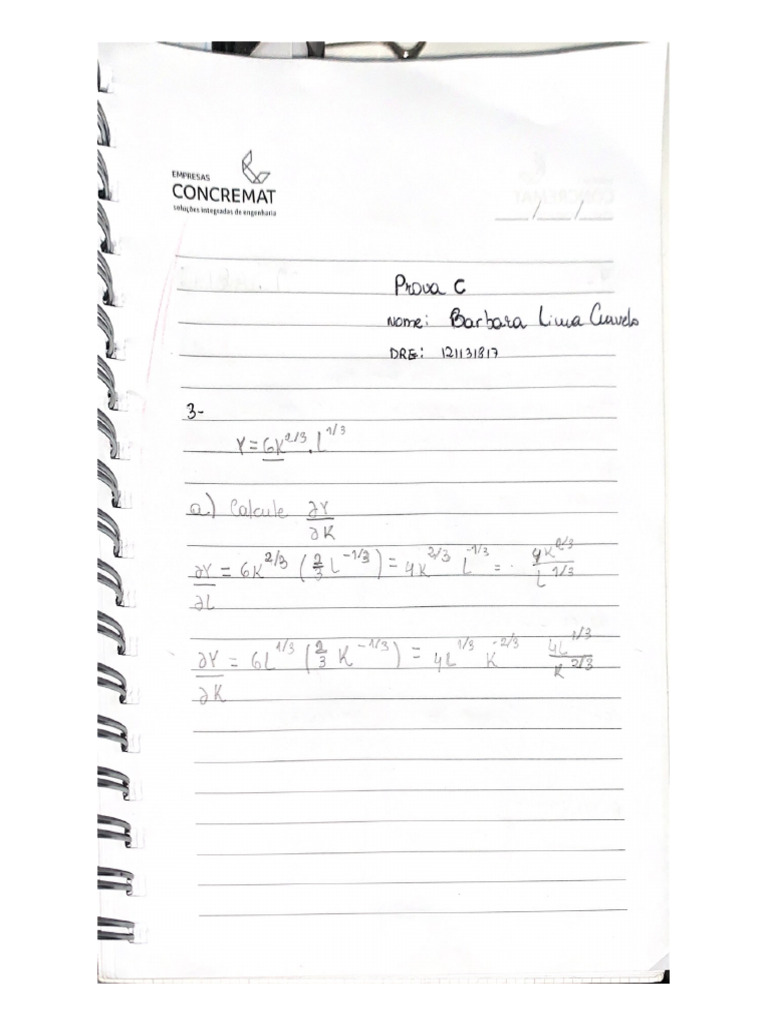 EMPRESAS
CONCREMAT
soluções integradas de engenharia
___/___/___
Prova C
Nome: Barbara Lima
DRE: 121131817
3-
Y = 6K^2/3 . L^1/3
a) Calcule ∂Y/∂K
∂Y/∂L = 6K^2/3 (2/3 L^-1/3) = 4K^2/3 L^-1/3 = 4K^2/3 / L^1/3
∂Y/∂K = 6L^1/3 (2/3 K^-1/3) = 4L^1/3 K^-2/3 4L^1/3 / K^2/3